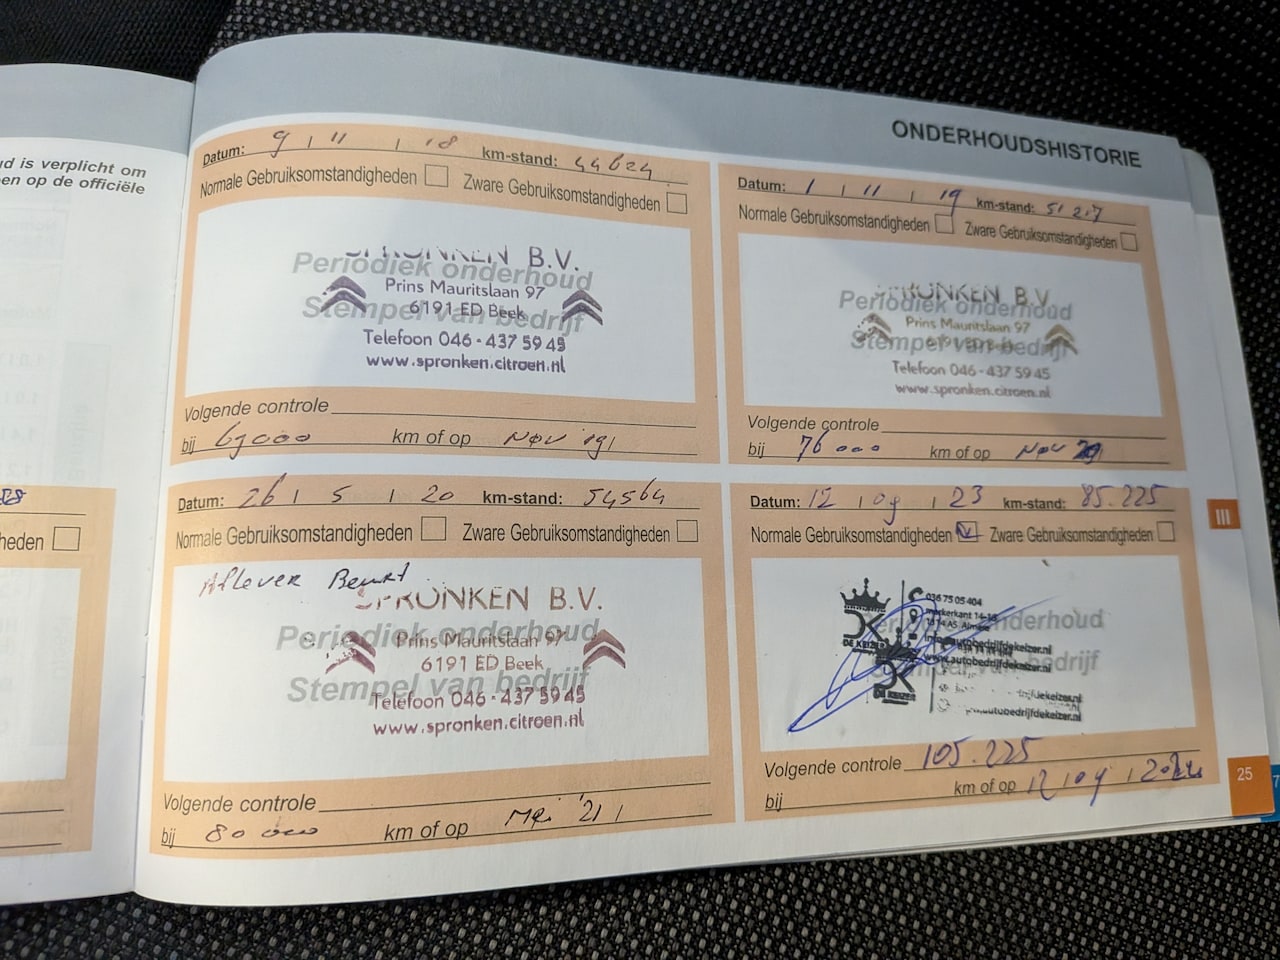 ONDERHOUDSHISTORIE
d is verplicht om
en op de officiële
heden
Datum: 9 11 18 km-stand: 44624
Normale Gebruiksomstandigheden Zware Gebruiksomstandigheden
Periodiek onderhoud
Stempel van bedrijf
SPRONKEN B.V.
Prins Mauritslaan 97
6191 ED Beek
Telefoon 046-437 59 45
www.spronken.citroen.nl
Volgende controle
bij 69000 km of op Nov '19
Datum: 1 11 19 km-stand: 51217
Normale Gebruiksomstandigheden Zware Gebruiksomstandigheden
Periodiek onderhoud
Stempel van bedrijf
SPRONKEN B.V.
Prins Mauritslaan 97
6191 ED Beek
Telefoon 046-437 59 45
www.spronken.citroen.nl
Volgende controle
bij 76000 km of op Nov
Datum: 26 5 20 km-stand: 54564
Normale Gebruiksomstandigheden Zware Gebruiksomstandigheden
Aflever Beurt
Periodiek onderhoud
Stempel van bedrijf
SPRONKEN B.V.
Prins Mauritslaan 97
6191 ED Beek
Telefoon 046-437 59 45
www.spronken.citroen.nl
Volgende controle
bij 80000 km of op Mei '21
Datum: 12 09 23 km-stand: 85.225
Normale Gebruiksomstandigheden Zware Gebruiksomstandigheden
Periodiek onderhoud
Stempel van bedrijf
DE KEIZER
036 75 05 404
info@autobedrijfdekeizer.nl
www.autobedrijfdekeizer.nl
DE KEIZER
Volgende controle 105.225
bij km of op 12 09 2024
III
25